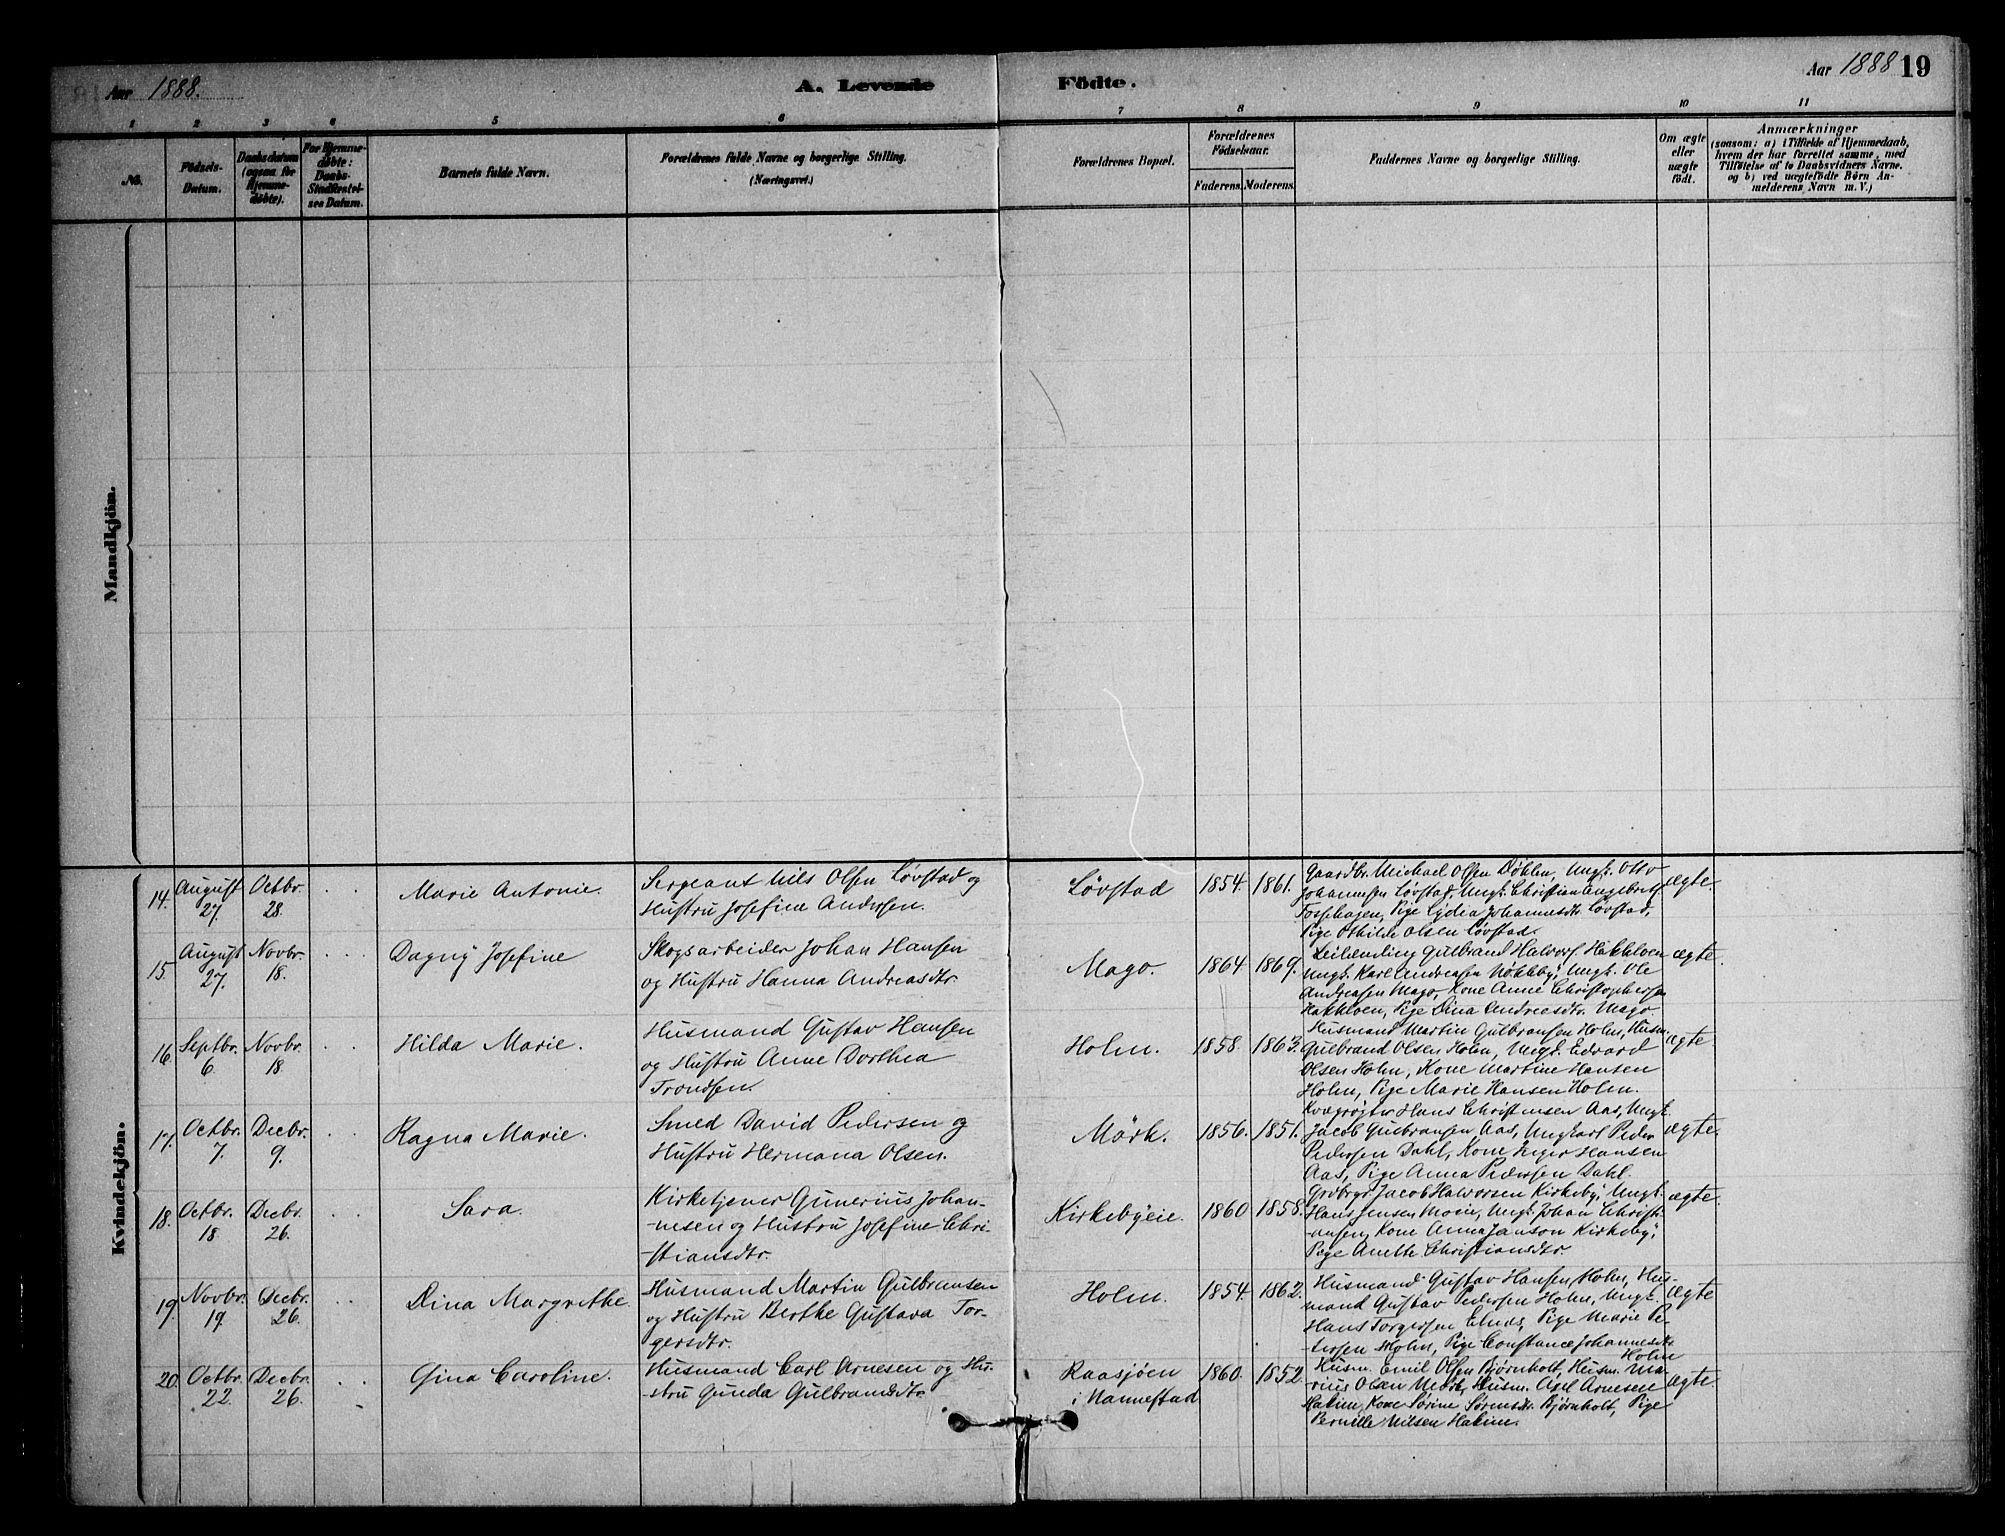 Aar 1888.
A. Levende Födte.
Aar 1888 19
1 2 3 4 5 6 7 8 9 10 11
No.
Födsels-Datum.
Daabsdatum (ogsaa for Hjemme-döbte).
For Hjemme-döbte: Daabs-Stadfæstel-ses Datum.
Barnets fulde Navn.
Forældrenes fulde Navne og borgerlige Stilling.
(Næringsvei.)
Forældrenes Bopæl.
Forældrenes Födselsaar.
Faderens. Moderens.
Faddernes Navne og borgerlige Stilling.
Om ægte eller uægte födt.
Anmærkninger
(saasom: a) i Tilfælde af Hjemmedaab,
hvem der har forrettet samme, med
Tilföielse af to Daabsvidners Navne.
og b) ved uægtefödte Börn An-
melderens Navn m. V.)
Mandkjön.
Kvindekjön.
14. August 27. Octbr. 28. Marie Antonie.
Sergeant Nils Olsen Løvstad og
Hustru Josefine Andersen.
Løvstad 1854. 1861.
Gaardbr. Michael Olsen Døhlen, Ungk. Otto
Johannesen Løvstad, Ungk. Christian Engebrets.
Fossehagen, Pige Lydia Johannesdtr. Løvstad,
Pige Othilde Olsen Løvstad.
ægte.
15. August 27. Novbr. 18. Dagny Josefine
Skogsarbeider Johan Hansen
og Hustru Hanna Andreasdtr.
Mago. 1864 1869.
Leilænding Gulbrand Halvors. Hakkloen
Ungk. Karl Andreasen Nökleby, Ungk. Ole
Andreasen Mago, Kone Anne Christophersen
Hakkloen, Pige Dina Andreasdtr. Mago.
ægte.
16. Septbr. 6. Novbr. 18. Hilda Marie.
Husmand Gustav Hansen
og Hustru Anne Dorthea
Trondsen.
Holm. 1858. 1863.
Husmand Martin Gulbransen Holm, Husm.
Gulbrand Olsen Holm, Ungk. Edvard
Olsen Holm, Kone Martine Hansen
Holm, Pige Marie Hansen Holm.
ægte.
17. Octbr. 7. Decbr. 9. Ragna Marie.
Smed David Pedersen og
Hustru Hermana Olsen.
Mörk. 1856. 1851.
Kvægrøgter Hans Christensen Aas, Ungk.
Jacob Gulbransen Aas, Ungkarl Peder
Pedersen Dahl, Kone Inger Hansen
Aas, Pige Anna Pedersen Dahl.
ægte.
18. Octbr. 18 Decbr. 26. Sara.
Kirketjener Gunerius Johan-
-nesen og Hustru Josefine Chri-
-stiansdtr.
Kirkebyeie. 1860 1858.
Grdbrgr. Jacob Halvorsen Kirkeby, Ungk.
Hans Jensen Moeie, Ungk. Johan Christi-
-ansen, Kone Anna Janson Kirkeby,
Pige Anette Christiansdtr.
ægte.
19. Novbr. 19 Decbr. 26. Dina Margrethe
Husmand Martin Gulbransen
og Hustru Berthe Gustava Tor-
gersdtr.
Holm. 1854. 1862.
Husmand Gustav Hansen Holm, Hus-
mand Gustav Pedersen Holm, Ungk.
Hans Torgersen Elnes, Pige Marie Pe-
-tersen Holm, Pige Constance Johannesdtr.
Holm
ægte
20. Octbr. 22. Decbr. 26. Gina Caroline.
Husmand Carl Arnesen og Hu-
stru Gunda Gulbrandsdtr.
Raasjøen
i Nannestad
1860. 1852.
Husm. Emil Olsen Bjørnholt, Husm. Ma-
rius Olsen Mörk, Husm. Axel Arnesen
Hakim, Kone Sørine Sørensdtr. Bjørnholt, Pige
Pernille Nilsen Hakim.
ægte.